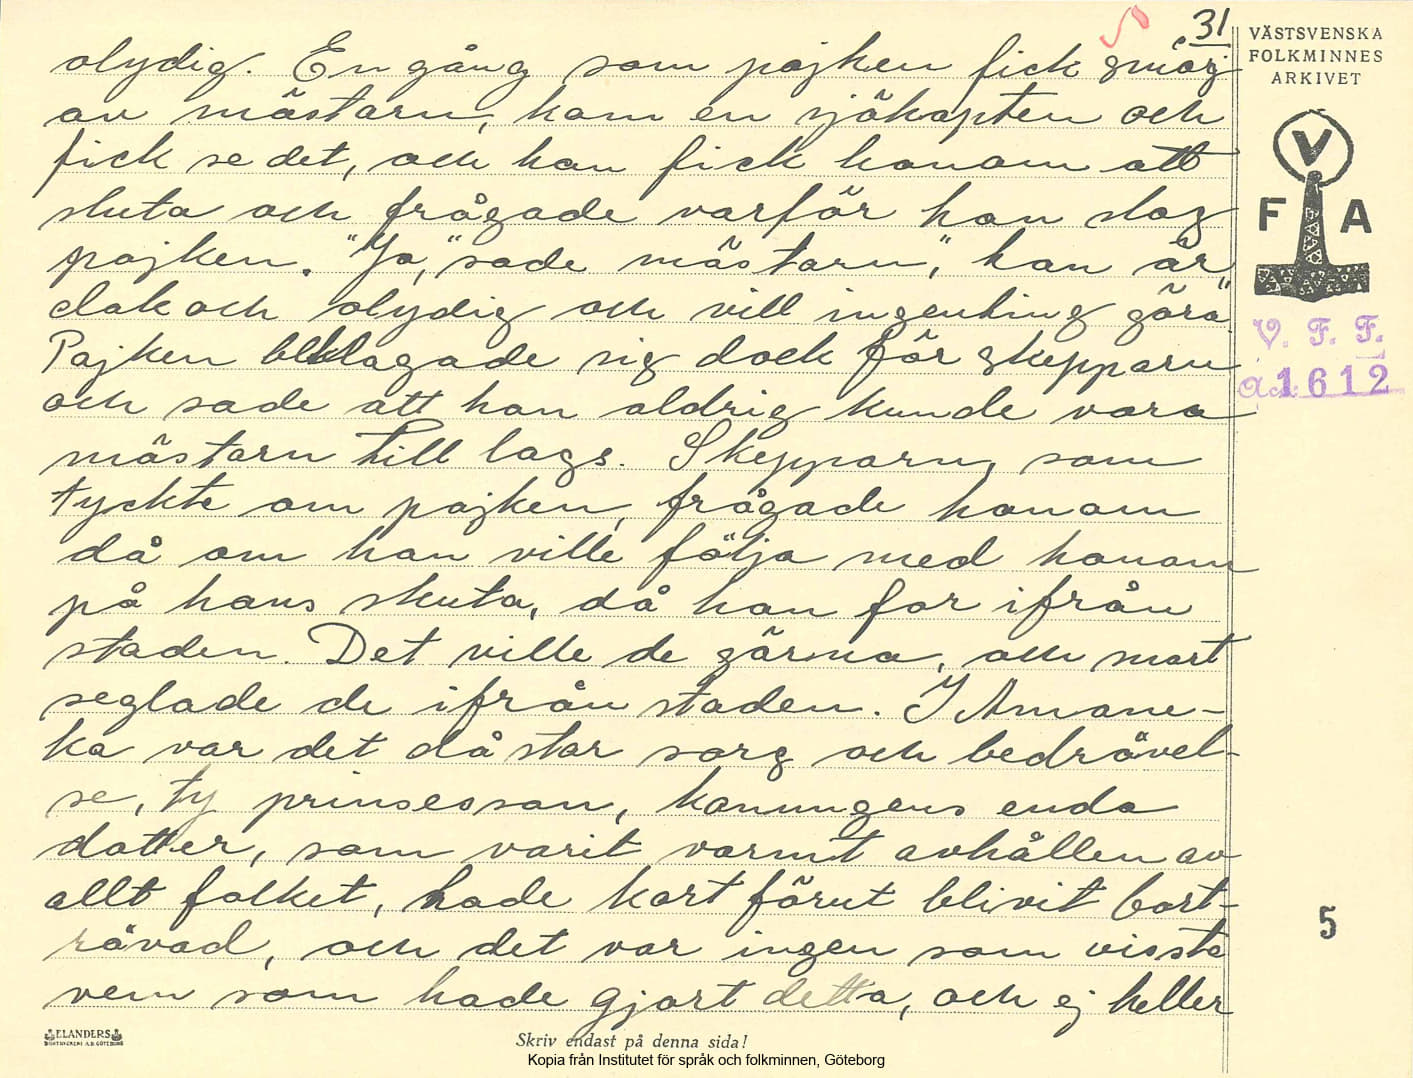 31
VÄSTSVENSKA
FOLKMINNES
ARKIVET
V
F A
V. F. F.
Acc: 1612
olydig. En gång som pojken fick smörj
av mästarn, kom en sjökapten och
fick se det, och han fick honom att
sluta och frågade varför han slog
pojken. "Jo," sade mästarn, "han är
elak och olydig och vill ingenting göra"
Pojken beklagade sig dock för skepparn
och sade att han aldrig kunde vara
mästarn till lags. Skepparn, som
tyckte om pojken, frågade honom
då om han ville följa med honom
på hans skuta, då han for ifrån
staden. Det ville de gärna, och snart
seglade de ifrån staden. I Amane-
ka var det då stor sorg och bedrövel-
se, ty prinsessan, konungens enda
dotter, som varit varmt avhållen av
allt folket, hade kort förut blivit bort-
rövad, och det var ingen som visste
vem som hade gjort detta, och ej heller
5
ELANDERS
BOKTRYCKERI A.B. GÖTEBORG
Skriv endast på denna sida!
Kopia från Institutet för språk och folkminnen, Göteborg